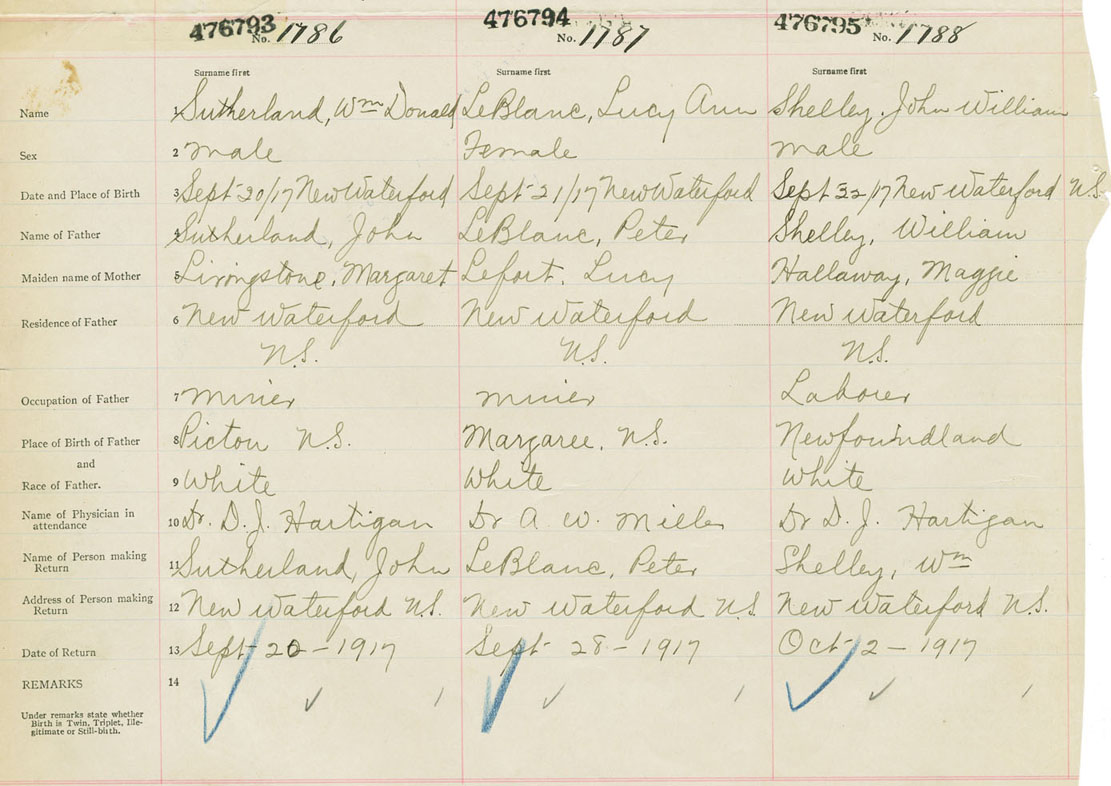 476793 No. 1786 476794 No. 1787 476795 No. 1788
Surname first Surname first Surname first
Name 1 Sutherland, Wm Donald LeBlanc, Lucy Ann Shelley, John William
Sex 2 male Female male
Date and Place of Birth 3 Sept 20/17 New Waterford Sept 21/17 New Waterford Sept 22/17 New Waterford N.S.
Name of Father 4 Sutherland, John LeBlanc, Peter Shelley, William
Maiden name of Mother 5 Livingstone, Margaret Lefort, Lucy Hallaway, Maggie
Residence of Father 6 New Waterford New Waterford New Waterford
N.S. N.S. N.S.
Occupation of Father 7 miner miner Laborer
Place of Birth of Father 8 Pictou N.S. Margaree, N.S. Newfoundland
and
Race of Father. 9 White White White
Name of Physician in
attendance 10 Dr. D. J. Hartigan Dr A. W. Miller Dr D. J. Hartigan
Name of Person making
Return 11 Sutherland, John LeBlanc, Peter Shelley, Wm
Address of Person making
Return 12 New Waterford N.S. New Waterford N.S. New Waterford N.S.
Date of Return 13 Sept 20 - 1917 Sept 28 - 1917 Oct 2 - 1917
REMARKS 14
Under remarks state whether
Birth is Twin, Triplet, Ille-
gitimate or Still-birth.